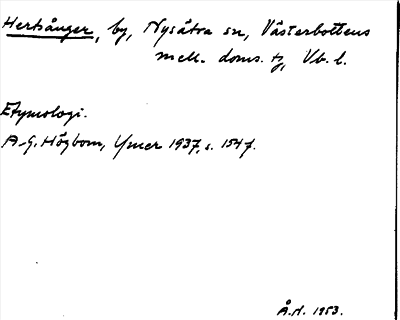 Hertsånger, by, Nysätra sn, Västerbottens
mell. doms. tg, Vb. l.
Etymologi.
A.G. Högbom, Ymer 1937, s. 154 f.
Å.H. 1953.